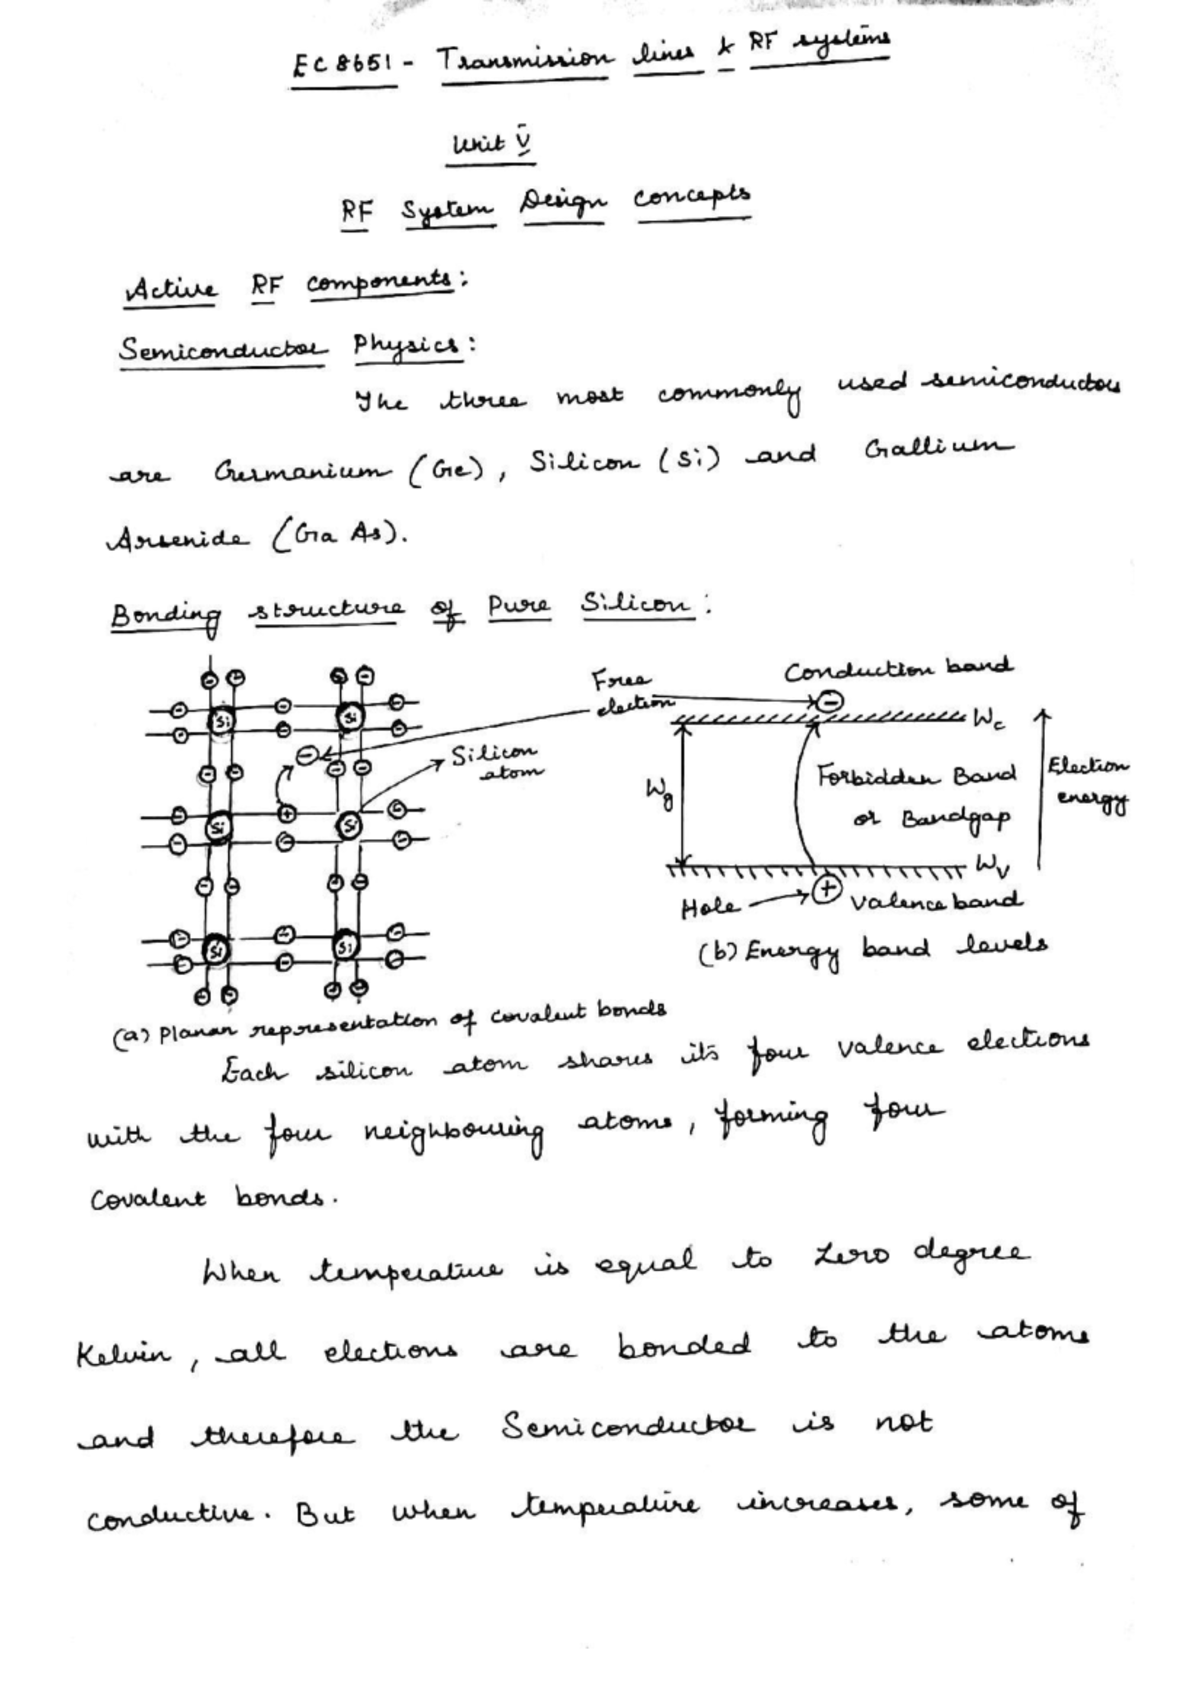 EC8651 - Transmission lines & RF systems
Unit V
RF System Design concepts
Active RF components:
Semiconductor Physics:
The three most commonly used semiconductors
are Germanium (Ge), Silicon (Si) and Gallium
Arsenide (Ga As).
Bonding structure of Pure Silicon:
Free
electron
Silicon
atom
Si
Si
Si
Si
Si
Si
Conduction band
Wc
Wg
Forbidden Band
or Bandgap
Electron
energy
Wv
Hole
Valence band
(b) Energy band levels
(a) Planar representation of covalent bonds
Each silicon atom shares its four valence electrons
with the four neighbouring atoms, forming four
covalent bonds.
When temperature is equal to zero degree
Kelvin, all electrons are bonded to the atoms
and therefore the Semiconductor is not
conductive. But when temperature increases, some of